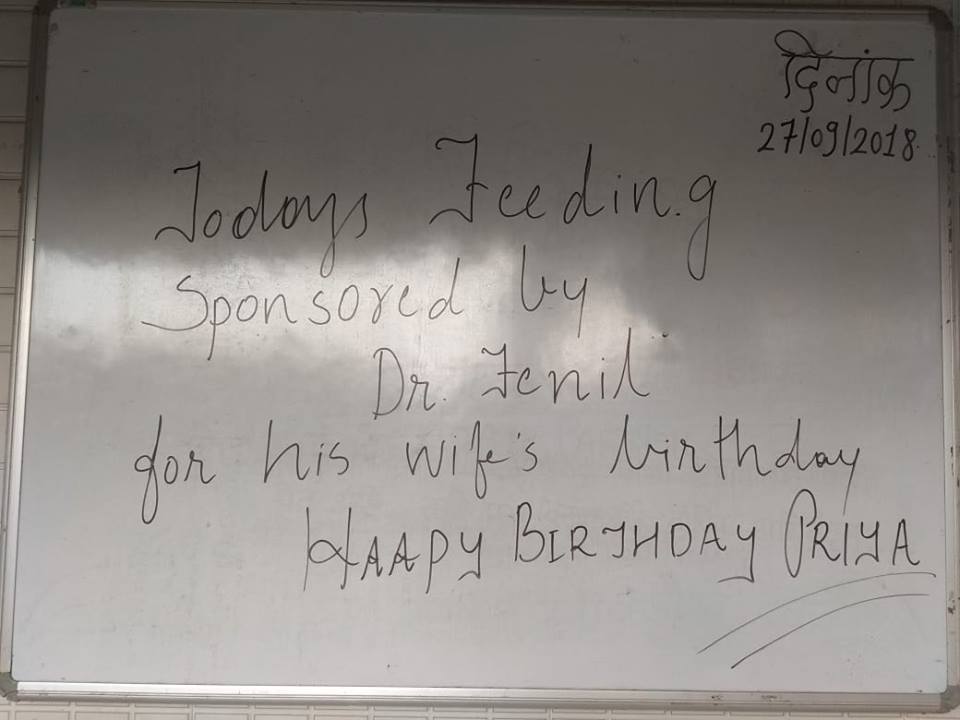 दिनांक
27/09/2018
Todays Feeding
Sponsored by
Dr. Fenil
for his wife's birthday
HAAPY BIRTHDAY PRIYA